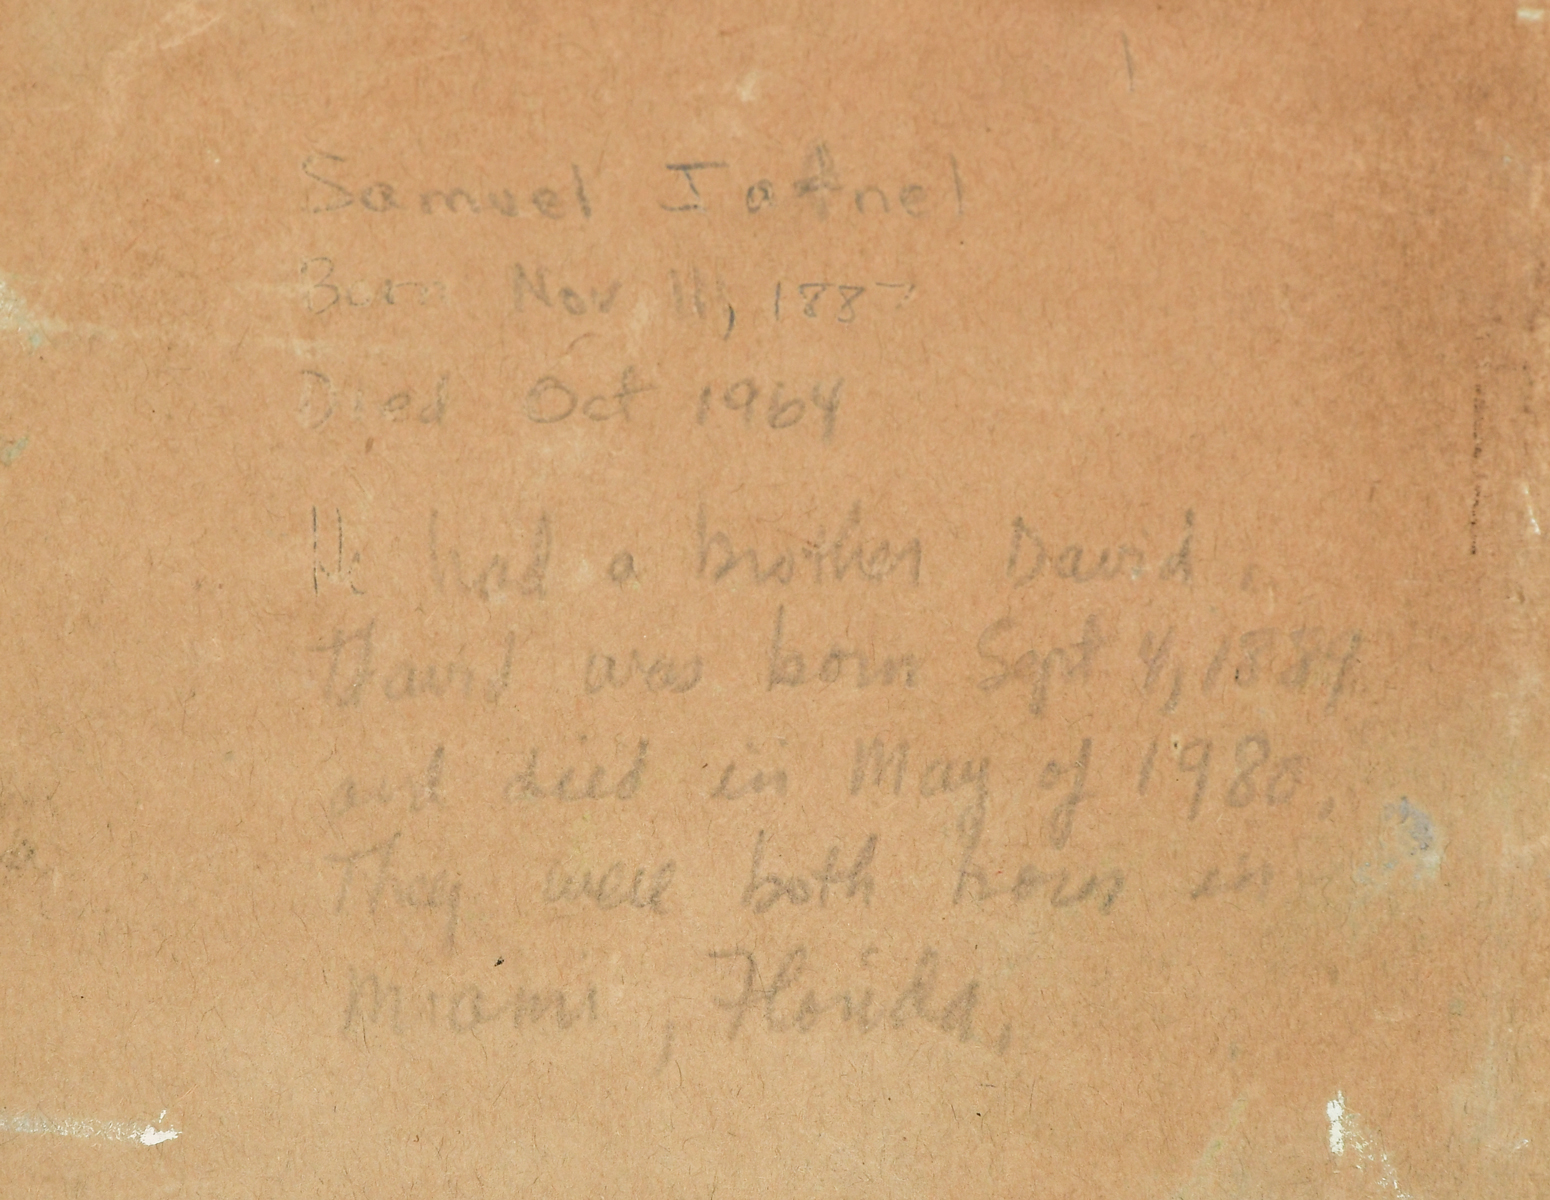 Samuel Iofnel
Born Nov 11, 1887
Died Oct 1964
He had a brother David.
David was born Sept 4, 1884
and died in May of 1980.
They were both born in
Miami, Florida.